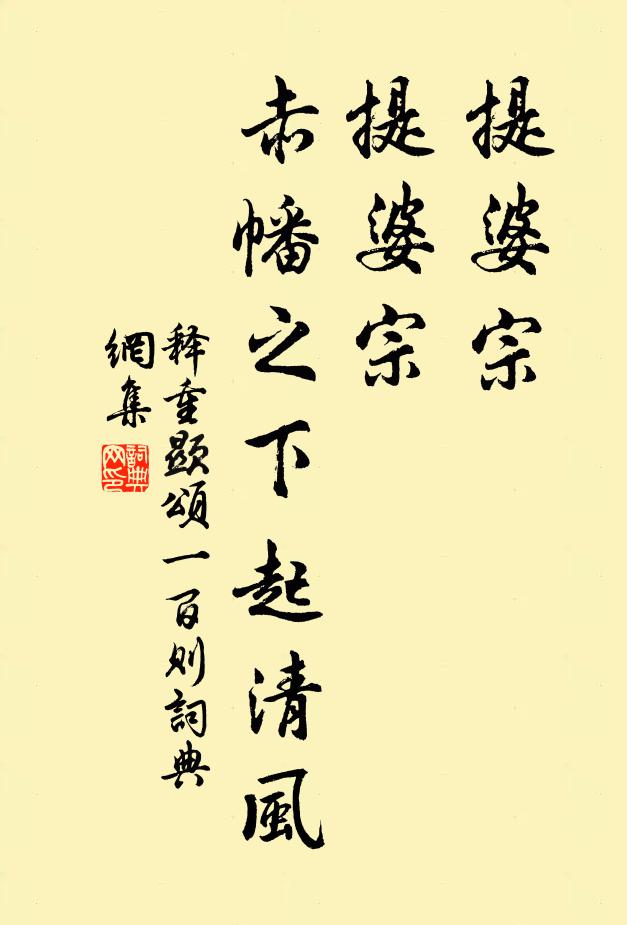 提婆宗
提婆宗
赤幡之下起清風
释重顯頌一百则詞典
網集
詞典
网印